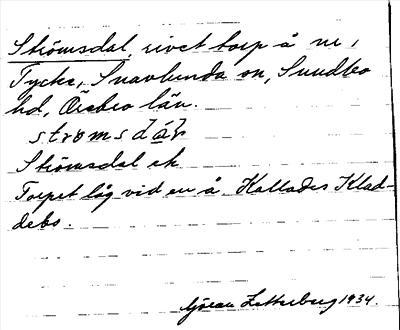 Strömsdal, rivet torp å nr 1
Tycke, Snavlunda sn, Sundbo
hd, Örebro län.
Strömsdal ek
Torpet låg vid en å. Kallades Klad-
debo.
Göran Zetterberg 1934.